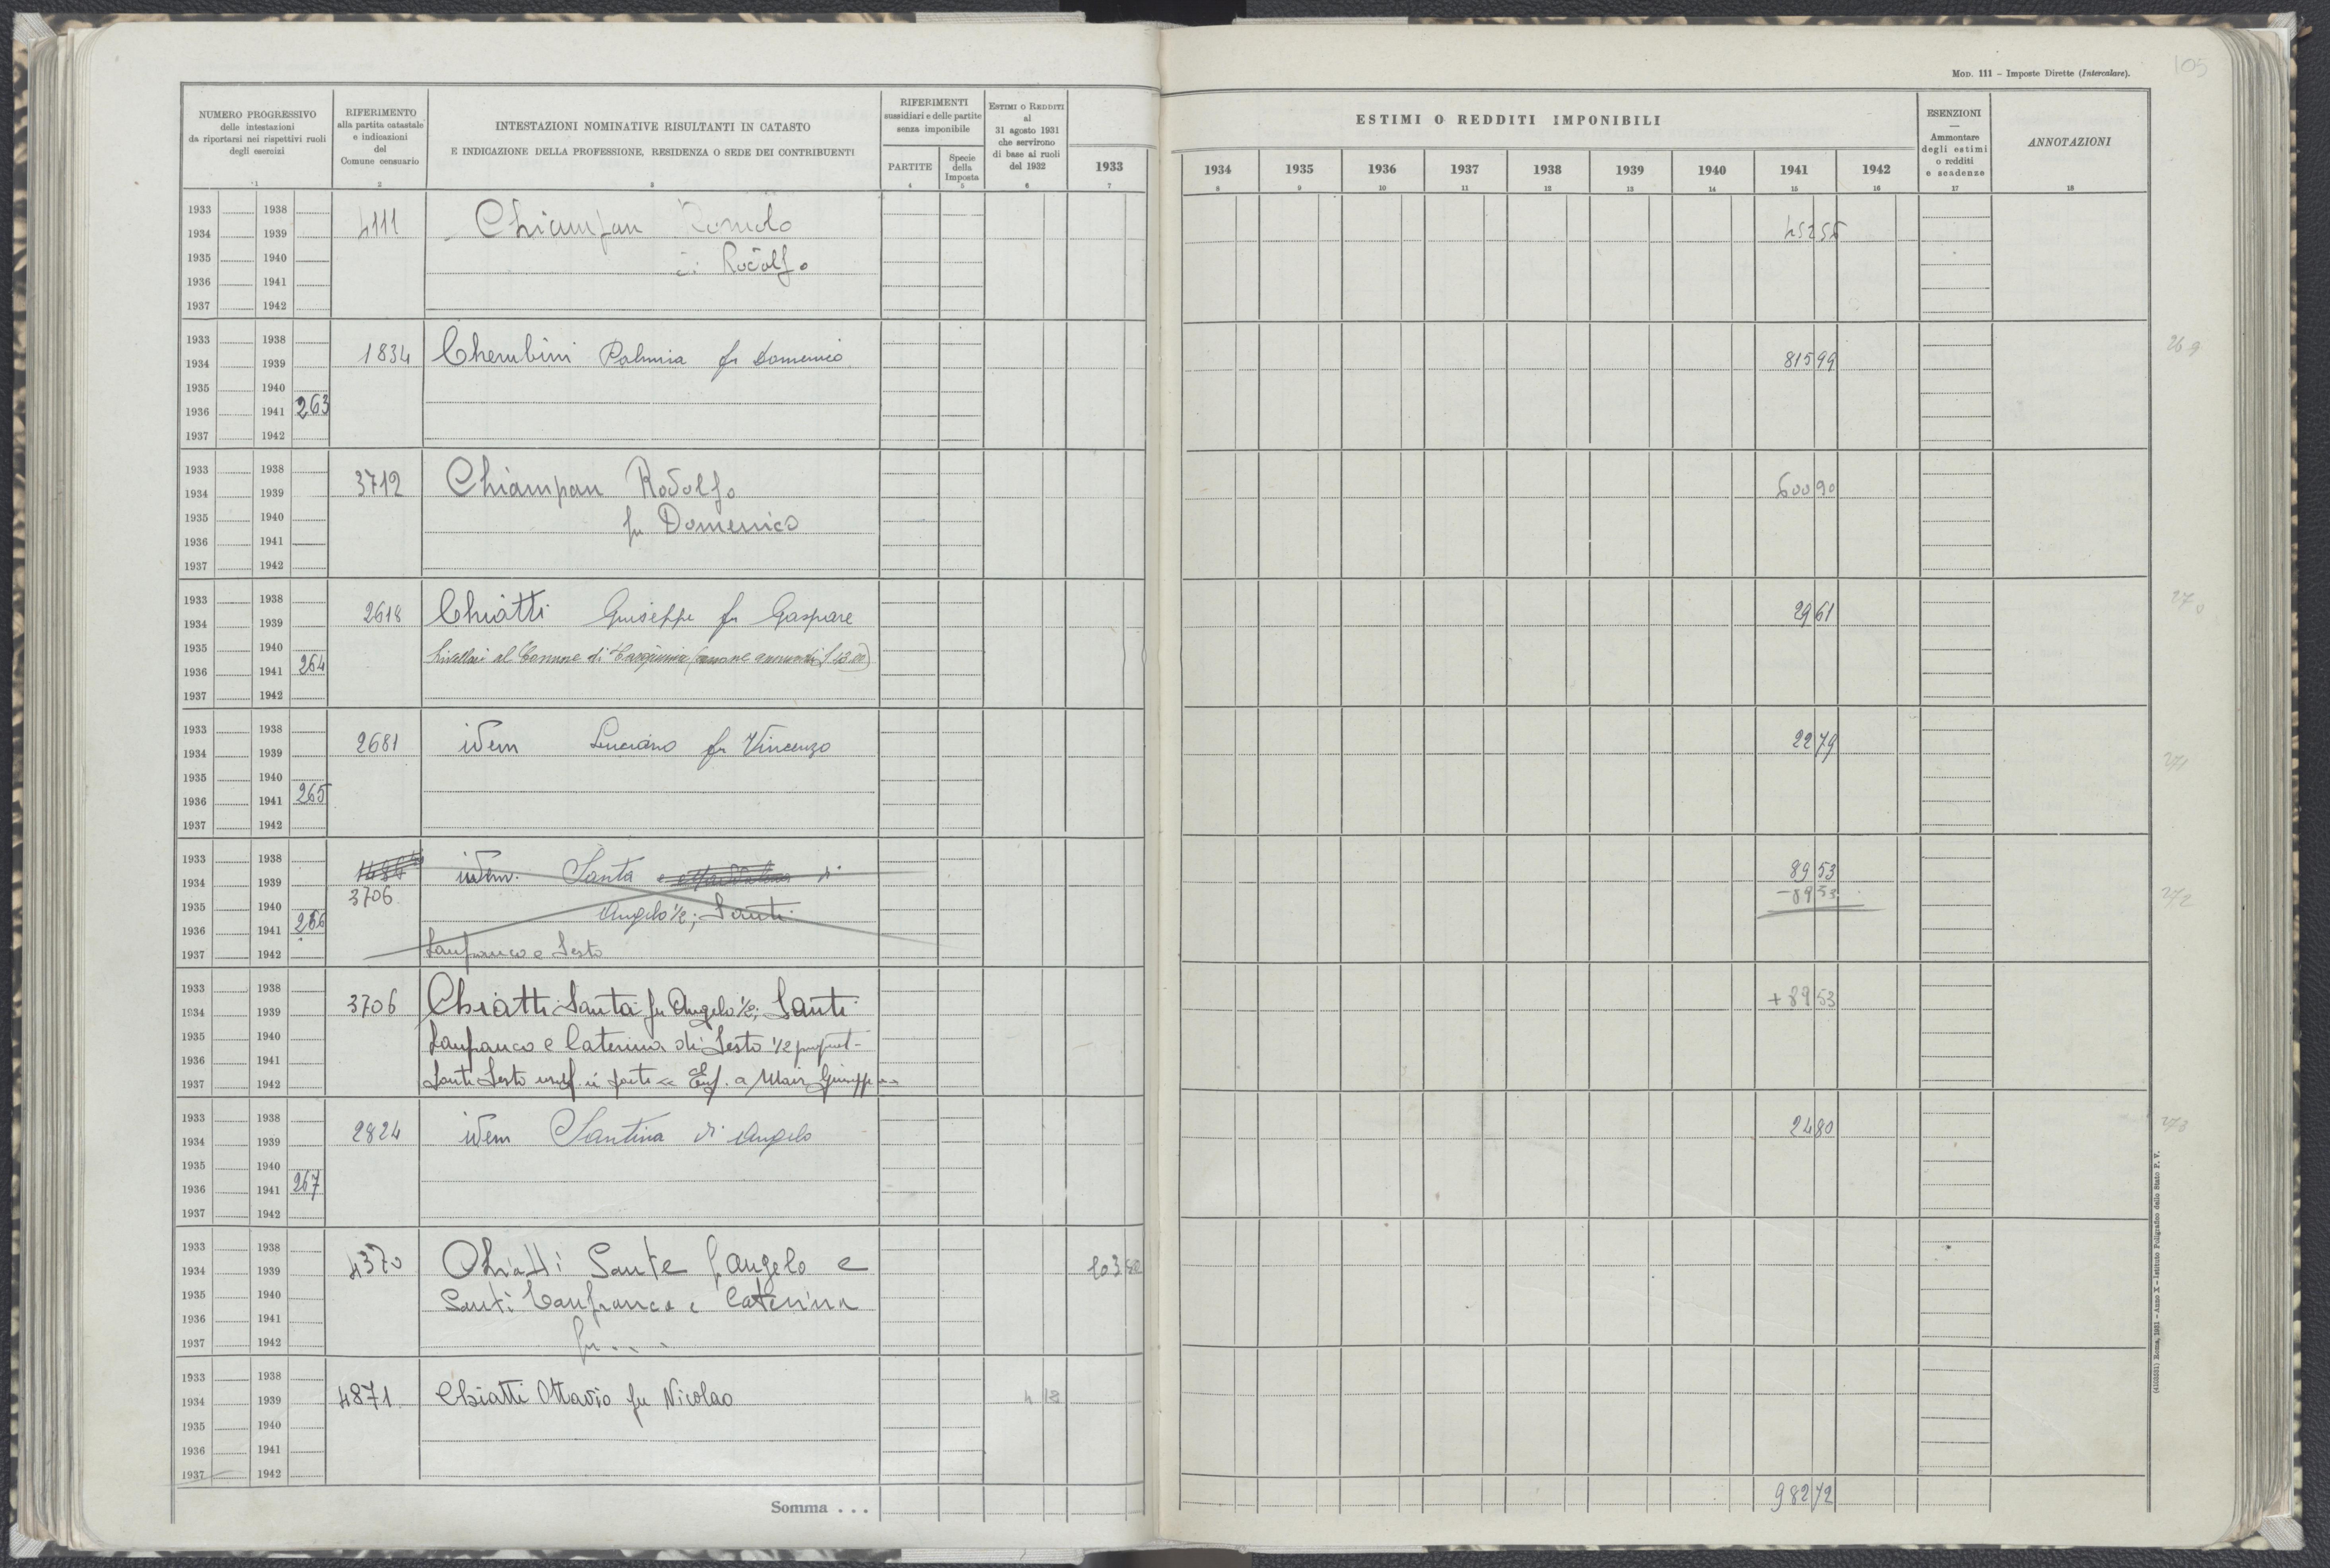 Mod. 111 – Imposte Dirette (Intercalare).
105
NUMERO PROGRESSIVO delle intestazioni da riportarsi nei rispettivi ruoli degli esercizi
RIFERIMENTO alla partita catastale e indicazioni del Comune censuario
INTESTAZIONI NOMINATIVE RISULTANTI IN CATASTO
E INDICAZIONE DELLA PROFESSIONE, RESIDENZA O SEDE DEI CONTRIBUENTI
RIFERIMENTI sussidiari e delle partite senza imponibile
PARTITE
Specie della Imposta
Estimi o Redditi al 31 agosto 1931 che servirono di base ai ruoli del 1932
1933
ESTIMI O REDDITI IMPONIBILI
1934 1935 1936 1937 1938 1939 1940 1941 1942
ESENZIONI — Ammontare degli estimi o redditi e scadenze
ANNOTAZIONI
1 2 3 4 5 6 7 8 9 10 11 12 13 14 15 16 17 18
1933 1938
1934 1939 4111 Chiampan Romolo
1935 1940 di Rodolfo
1936 1941
1937 1942
1933 1938
1934 1939 1834 Cherubini Palmira fu Domenico 815 99 269
1935 1940
1936 1941 263
1937 1942
1933 1938
1934 1939 3712 Chiampan Rodolfo 600 90
1935 1940 fu Domenico
1936 1941
1937 1942
1933 1938
1934 1939 2618 Chiatti Giuseppe fu Gaspare 29 61 270
1935 1940 livellari al Comune di Tarquinia (canone annuo di £ 43.00)
1936 1941 264
1937 1942
1933 1938
1934 1939 2681 idem Luciano fu Vincenzo 22 79 271
1935 1940
1936 1941 265
1937 1942
1933 1938
1934 1939 idem Santa di 89 53
1935 1940 3706 Angelo 1/2; Santi – 89 53 272
1936 1941 266
1937 1942 Lanfranco e Sesto
1933 1938
1934 1939 3706 Chiatti Santa fu Angelo 1/2; Santi + 89 53
1935 1940 Lanfranco e Caterina di Sesto 1/2 propriet-
1936 1941
1937 1942 Santi Sesto usuf. in parte
1933 1938
1934 1939 2824 idem Santina di Angelo 24 80 273
1935 1940
1936 1941 267
1937 1942
1933 1938
1934 1939 4370 Chiatti Sante f Angelo e 103
1935 1940 Santi Lanfranco e Caterina
1936 1941
1937 1942 fu
1933 1938
1934 1939 4871 Chiatti Ottavio fu Nicolao 4 18
1935 1940
1936 1941
1937 1942
Somma . . . 982 72
(4103551) Roma, 1931 – Anno X – Istituto Poligrafico dello Stato P. V.